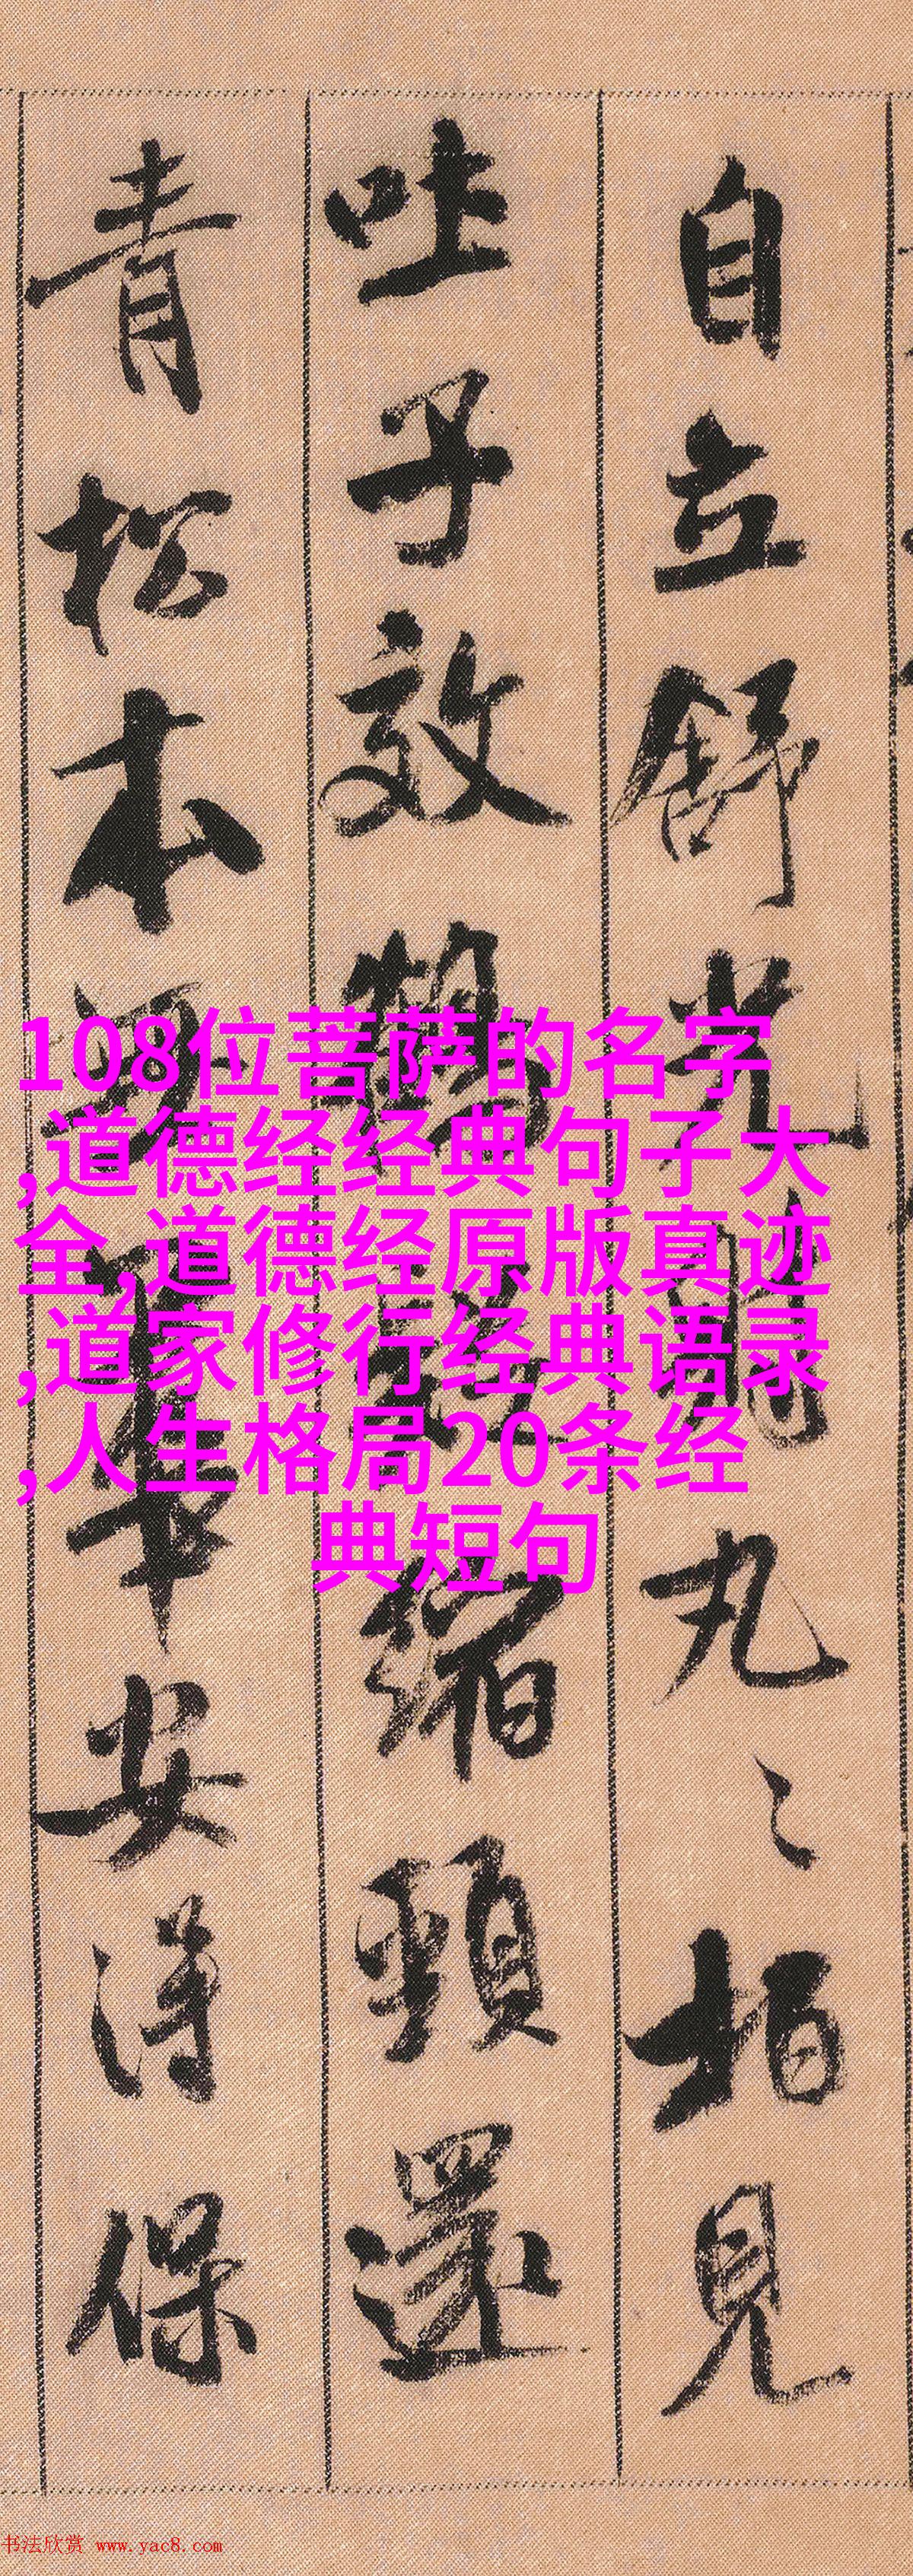 自立舒光丸〻柏見
吐子效鶴縮頸還
青松本華安得保
108位菩萨的名字
,道德经经典句子大
全,道德经原版真迹
,道家修行经典语录
,人生格局20条经
典短句
书法欣赏 www.yac8.com